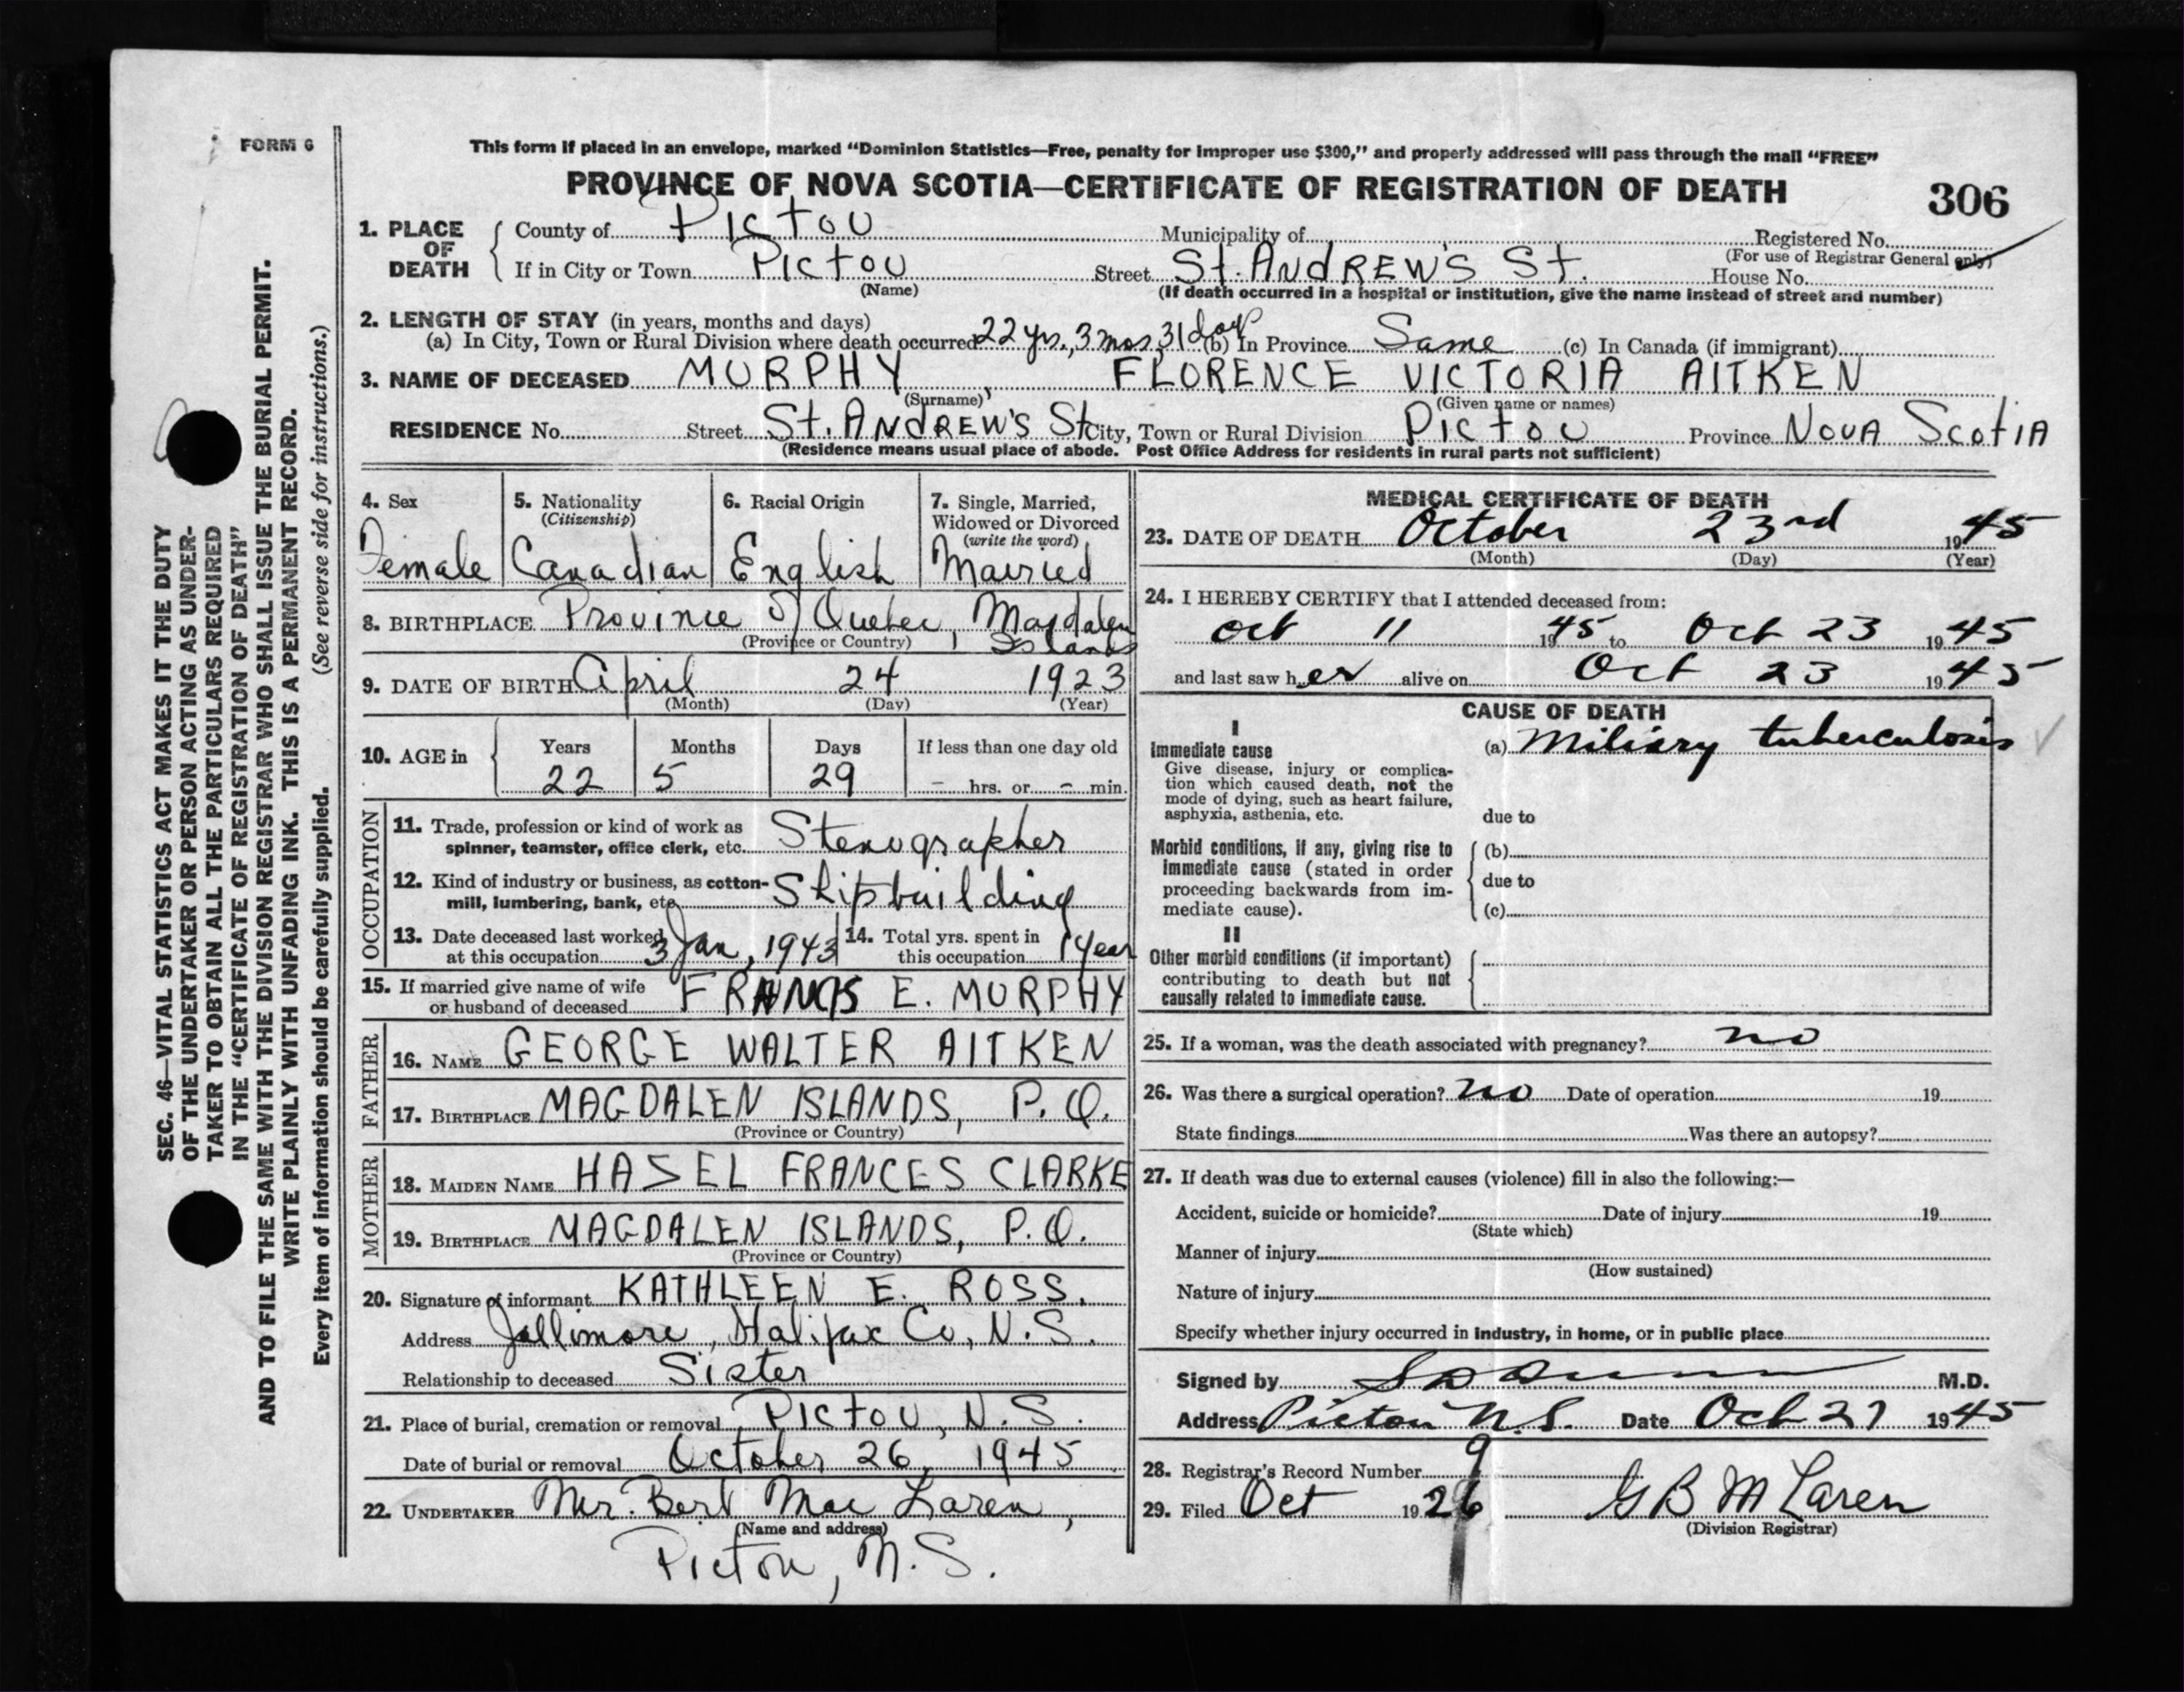 FORM 6
This form if placed in an envelope, marked "Dominion Statistics—Free, penalty for improper use $300," and properly addressed will pass through the mail "FREE"
PROVINCE OF NOVA SCOTIA—CERTIFICATE OF REGISTRATION OF DEATH
306
1. PLACE OF DEATH
County of Pictou Municipality of Registered No.
(For use of Registrar General only)
If in City or Town Pictou Street St. ANDREW'S St. House No.
(Name) (If death occurred in a hospital or institution, give the name instead of street and number)
2. LENGTH OF STAY (in years, months and days)
(a) In City, Town or Rural Division where death occurred 22 yrs., 3 mos 31 days (b) In Province Same (c) In Canada (if immigrant)
3. NAME OF DECEASED MURPHY, FLORENCE VICTORIA AITKEN
(Surname) (Given name or names)
RESIDENCE No. Street St. ANDREW'S St City, Town or Rural Division Pictou Province NOVA ScotiA
(Residence means usual place of abode. Post Office Address for residents in rural parts not sufficient)
4. Sex
Female
5. Nationality
(Citizenship)
Canadian
6. Racial Origin
English
7. Single, Married,
Widowed or Divorced
(write the word)
Married
8. BIRTHPLACE Province of Quebec, Magdalen
Islands
(Province or Country)
9. DATE OF BIRTH April 24 1923
(Month) (Day) (Year)
10. AGE in
Years Months Days If less than one day old
22 5 29 – hrs. or – min.
OCCUPATION
11. Trade, profession or kind of work as
spinner, teamster, office clerk, etc. Stenographer
12. Kind of industry or business, as cotton-
mill, lumbering, bank, etc. Shipbuilding
13. Date deceased last worked
at this occupation 3 Jan, 1943
14. Total yrs. spent in
this occupation 1 year
15. If married give name of wife
or husband of deceased FRANCIS E. MURPHY
FATHER
16. NAME GEORGE WALTER AITKEN
17. BIRTHPLACE MAGDALEN ISLANDS, P.Q.
(Province or Country)
MOTHER
18. MAIDEN NAME HASEL FRANCES CLARKE
19. BIRTHPLACE MAGDALEN ISLANDS, P.Q.
(Province or Country)
20. Signature of informant KATHLEEN E. ROSS.
Address Jollimore, Halifax Co, N.S.
Relationship to deceased Sister
21. Place of burial, cremation or removal Pictou, N.S.
Date of burial or removal October 26, 1945
22. UNDERTAKER Mr. Bert Mac Laren,
(Name and address)
Pictou, N.S.
MEDICAL CERTIFICATE OF DEATH
23. DATE OF DEATH October 23rd 1945
(Month) (Day) (Year)
24. I HEREBY CERTIFY that I attended deceased from:
Oct 11 1945 to Oct 23 1945
and last saw her alive on Oct 23 1945
CAUSE OF DEATH
I
Immediate cause
Give disease, injury or complica-
tion which caused death, not the
mode of dying, such as heart failure,
asphyxia, asthenia, etc.
(a) Miliary tuberculosis
due to
Morbid conditions, if any, giving rise to
immediate cause (stated in order
proceeding backwards from im-
mediate cause).
(b)
due to
(c)
II
Other morbid conditions (if important)
contributing to death but not
causally related to immediate cause.
25. If a woman, was the death associated with pregnancy? no
26. Was there a surgical operation? no Date of operation 19
State findings Was there an autopsy?
27. If death was due to external causes (violence) fill in also the following:—
Accident, suicide or homicide? Date of injury 19
(State which)
Manner of injury
(How sustained)
Nature of injury
Specify whether injury occurred in industry, in home, or in public place
Signed by M.D.
Address Pictou N.S. Date Oct 27 1945
28. Registrar's Record Number 9
29. Filed Oct 1926 G B M Laren
(Division Registrar)
SEC. 46—VITAL STATISTICS ACT MAKES IT THE DUTY
OF THE UNDERTAKER OR PERSON ACTING AS UNDER-
TAKER TO OBTAIN ALL THE PARTICULARS REQUIRED
IN THE "CERTIFICATE OF REGISTRATION OF DEATH"
AND TO FILE THE SAME WITH THE DIVISION REGISTRAR WHO SHALL ISSUE THE BURIAL PERMIT.
WRITE PLAINLY WITH UNFADING INK. THIS IS A PERMANENT RECORD.
Every item of information should be carefully supplied. (See reverse side for instructions.)